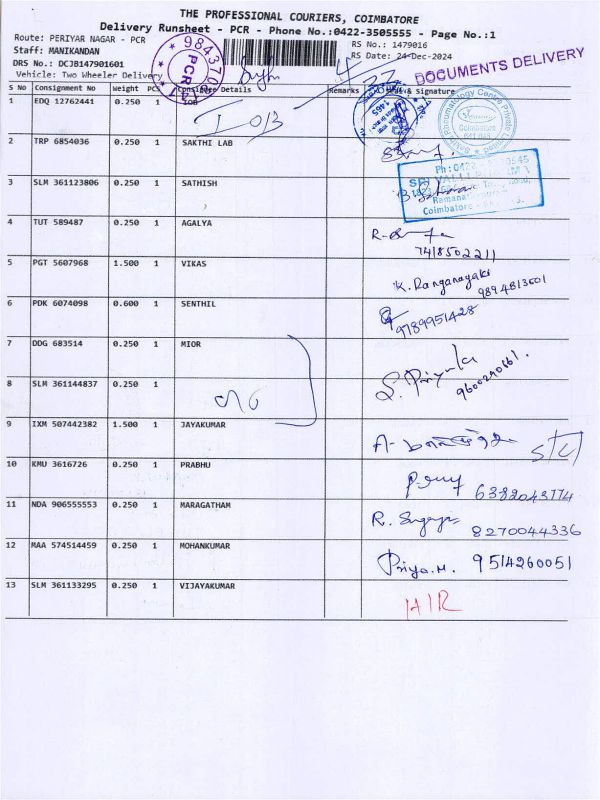 THE PROFESSIONAL COURIERS, COIMBATORE
Delivery Runsheet - PCR - Phone No.:0422-3505555 - Page No.:1
Route: PERIYAR NAGAR - PCR
RS No.: 1479016
Staff: MANIKANDAN
RS Date: 24-Dec-2024
DRS No.: DCJB147901601
Vehicle: Two Wheeler Delivery
DOCUMENTS DELIVERY
PCR
S No Consignment No Weight PCS Consignee Details Remarks & signature
1 EDQ 12762441 0.250 IOB
IOB
2 TRP 6854036 0.250 1 SAKTHI LAB
3 SLM 361123806 0.250 1 SATHISH
4 TUT 589487 0.250 1 AGALYA
7418502211
5 PGT 5607968 1.500 1 VIKAS K. Ranganayaki
9894813601
6 PDK 6074098 0.600 1 SENTHIL 9789951428
7 DDG 683514 0.250 1 MIOR S. Priyanka
8 SLM 361144837 0.250 1 9600290661.
9 IXM 507442382 1.500 1 JAYAKUMAR
10 KMU 3616726 0.250 1 PRABHU 6382043774
11 NDA 906555553 0.250 1 MARAGATHAM 8270044336
12 MAA 574514459 0.250 1 MOHANKUMAR Priya.M. 9514260051
13 SLM 361133295 0.250 1 VIJAYAKUMAR